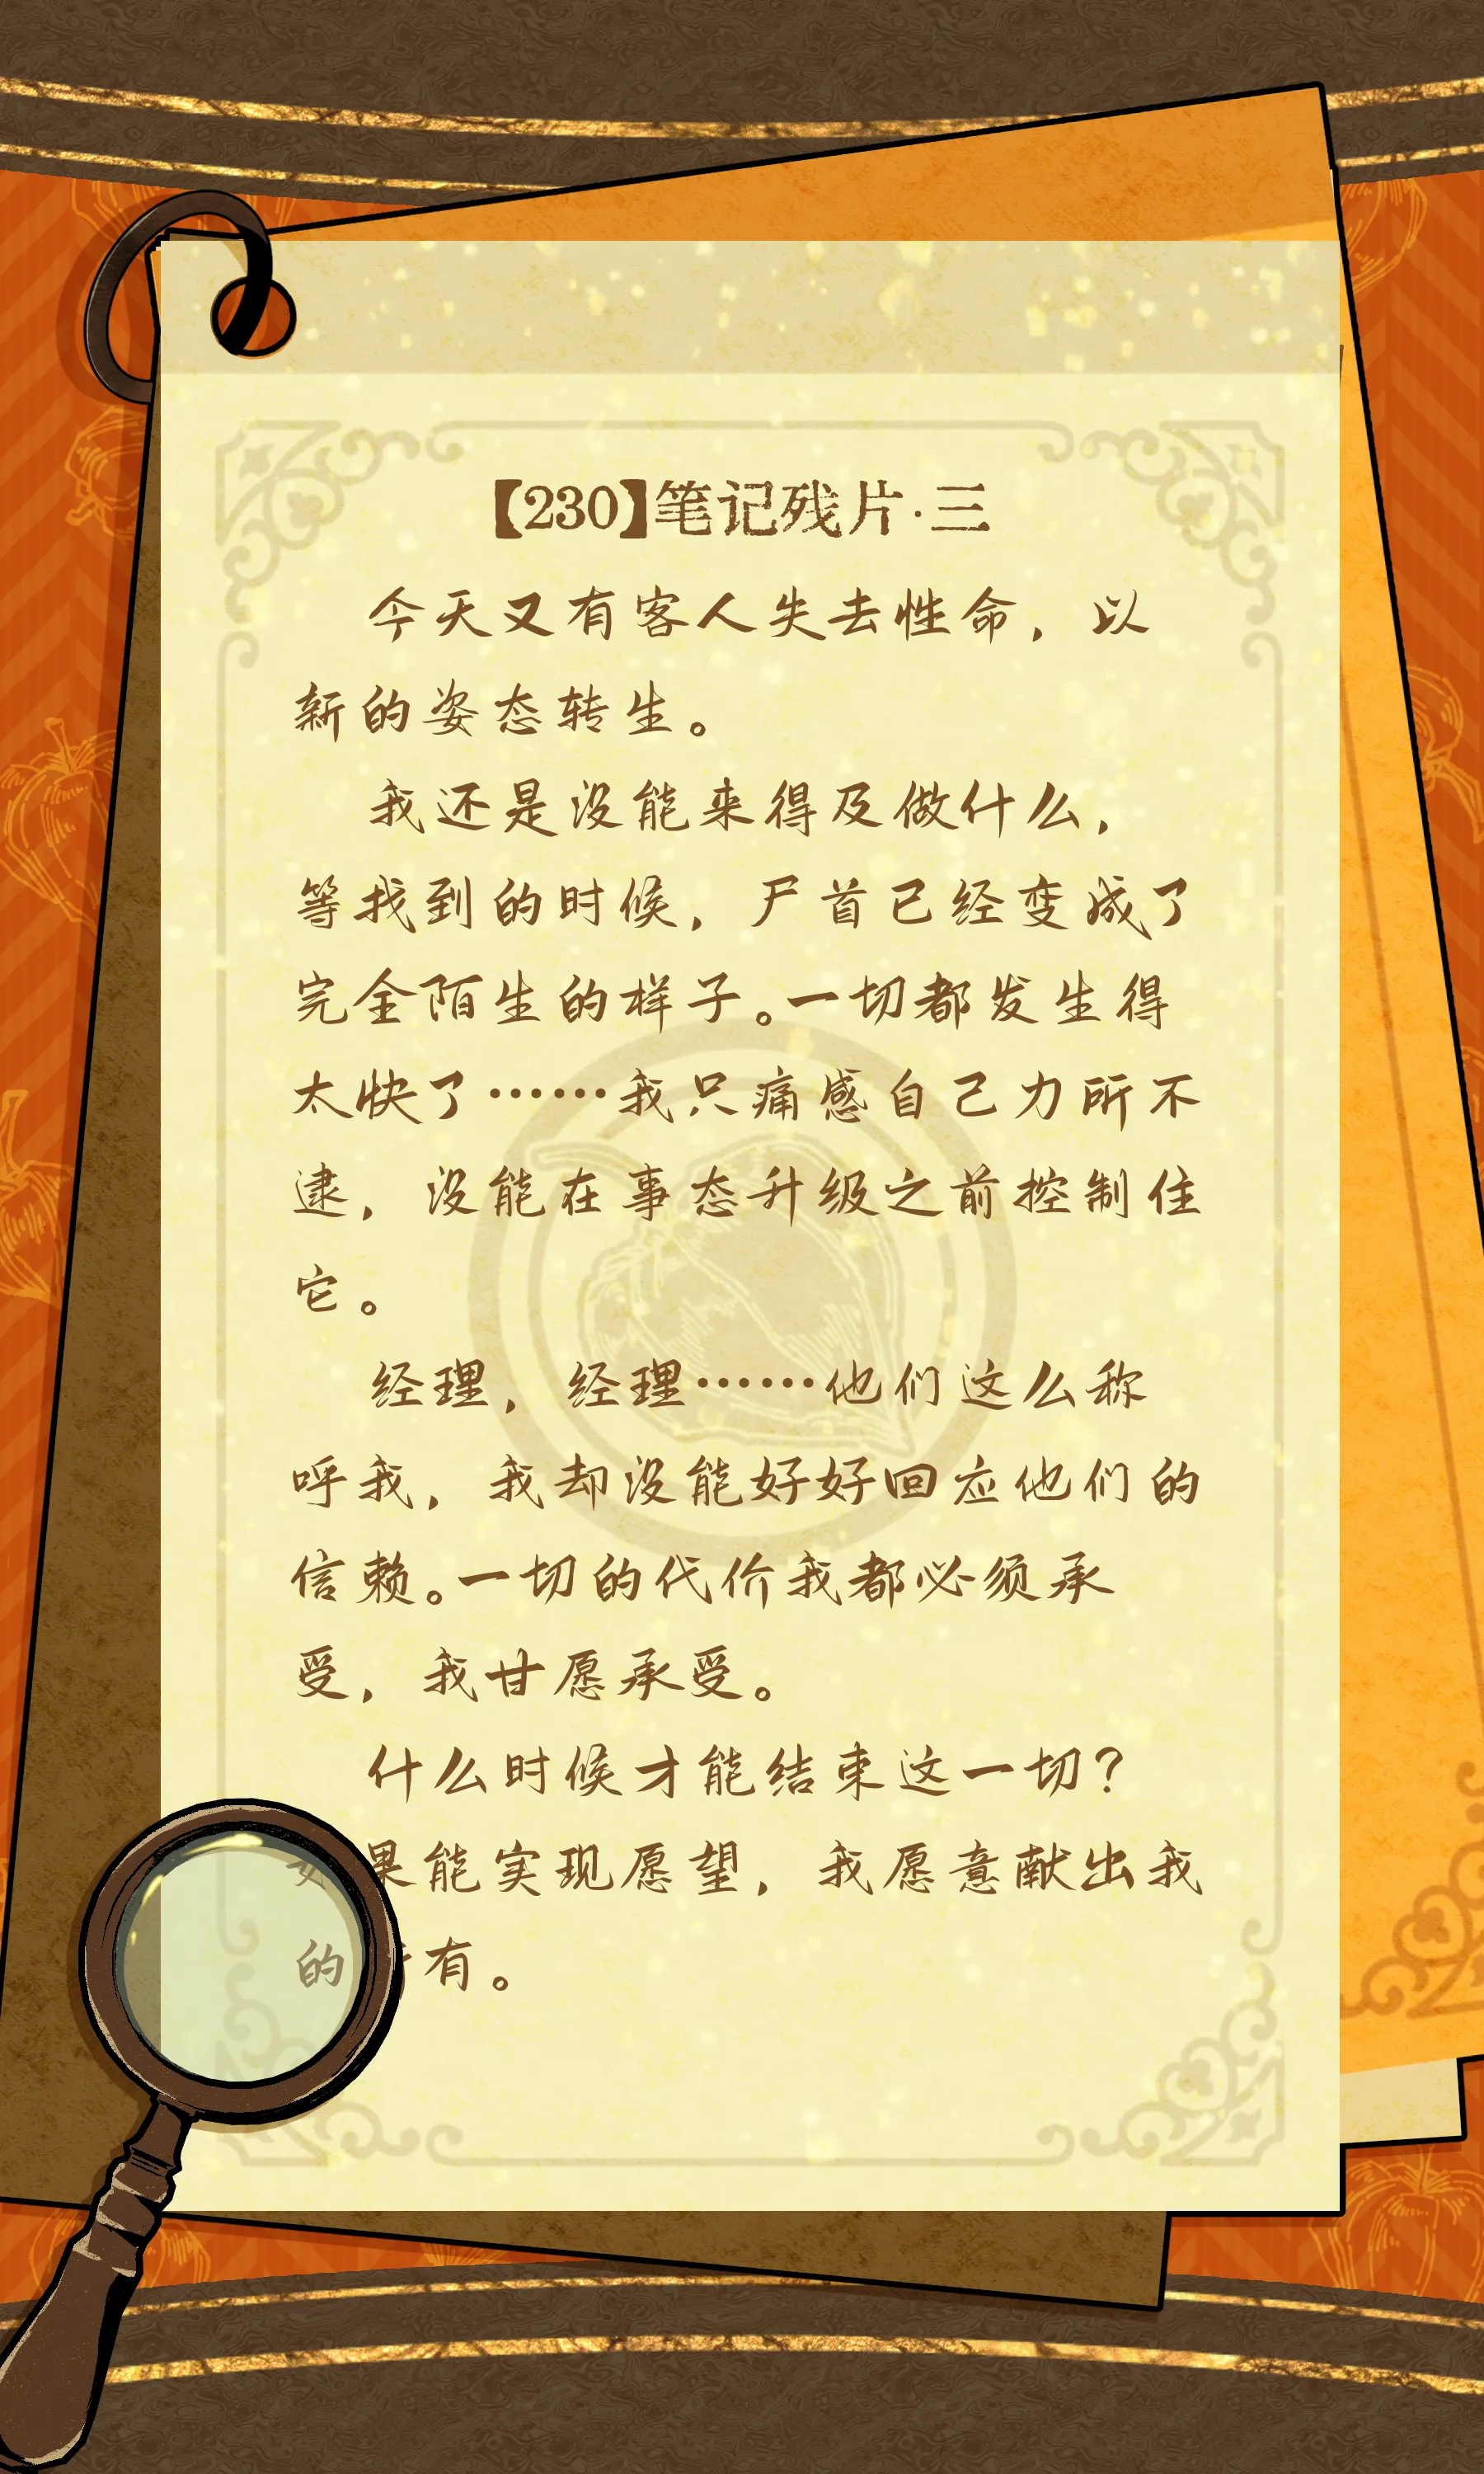 【230】笔记残片·三
今天又有客人失去性命，以
新的姿态转生。
我还是没能来得及做什么，
等找到的时候，尸首已经变成了
完全陌生的样子。一切都发生得
太快了……我只痛感自己力所不
逮，没能在事态升级之前控制住
它。
经理，经理……他们这么称
呼我，我却没能好好回应他们的
信赖。一切的代价我都必须承
受，我甘愿承受。
什么时候才能结束这一切？
如果能实现愿望，我愿意献出我
的有。